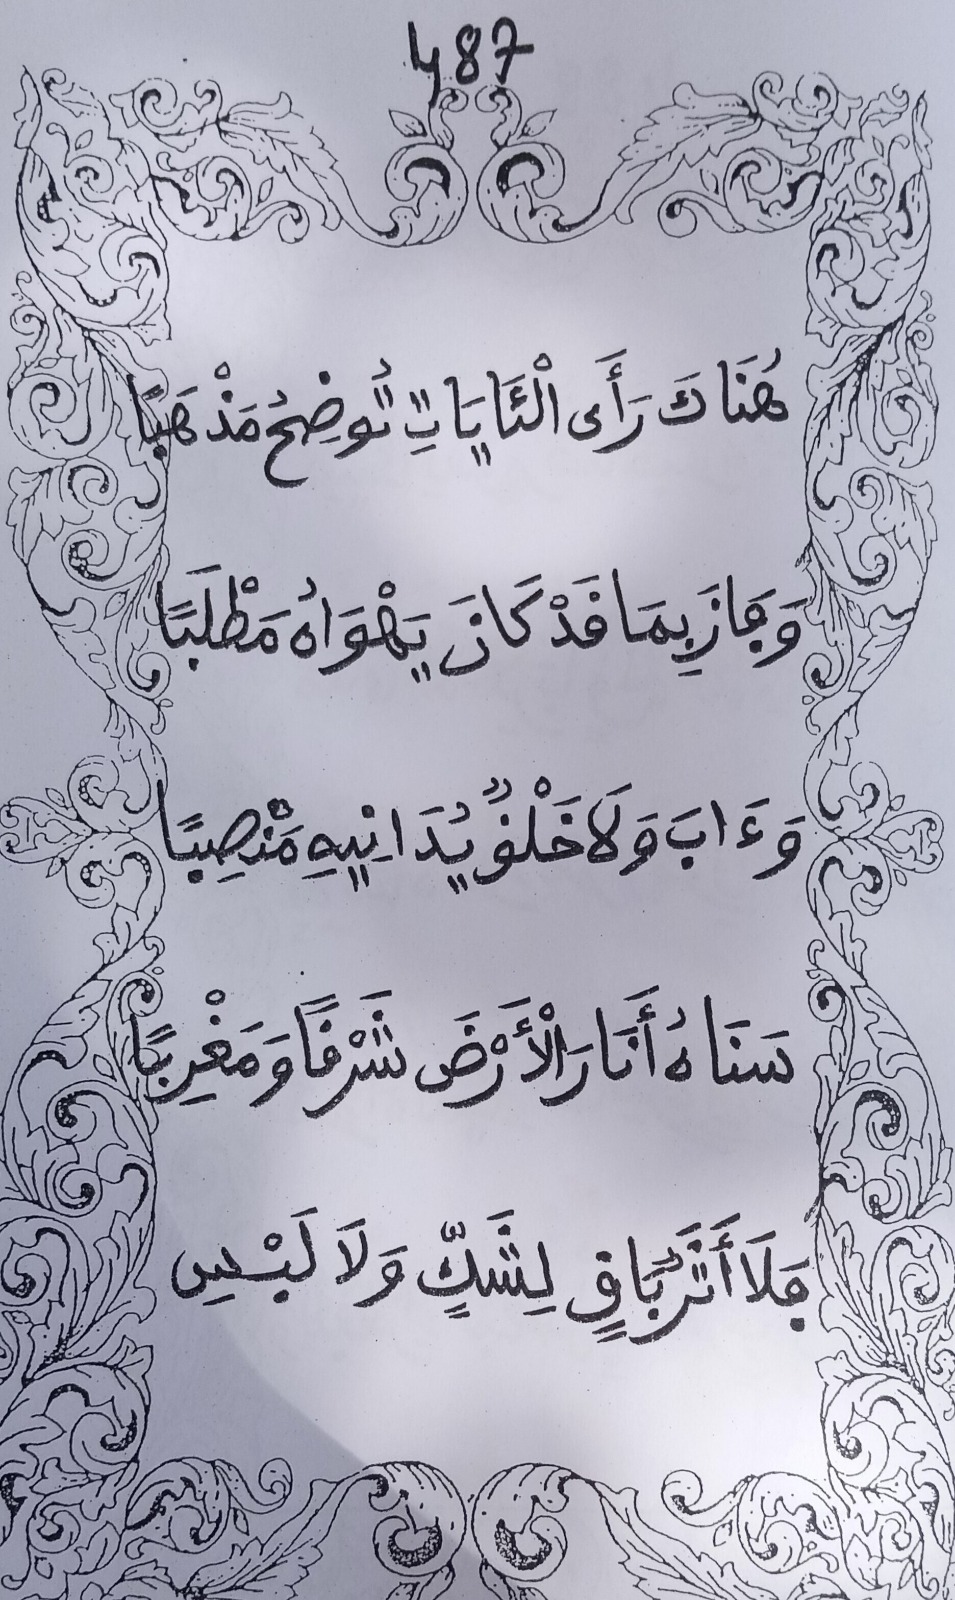 487
هُنَاكَ رَأَى الْئَايَاتِ تُوضِحُ مَذْهَبًا
وَفَازَ بِمَا قَدْ كَانَ يَهْوَاهُ مَطْلَبًا
وَءَابَ وَلَا خَلْقٌ يُدَانِيهِ مَنْصِبًا
سَنَاهُ أَنَارَ الْأَرْضَ شَرْقًا وَمَغْرِبًا
فَلَا أَثَرٌ بَاقٍ لِشَكٍّ وَلَا لَبْسِ